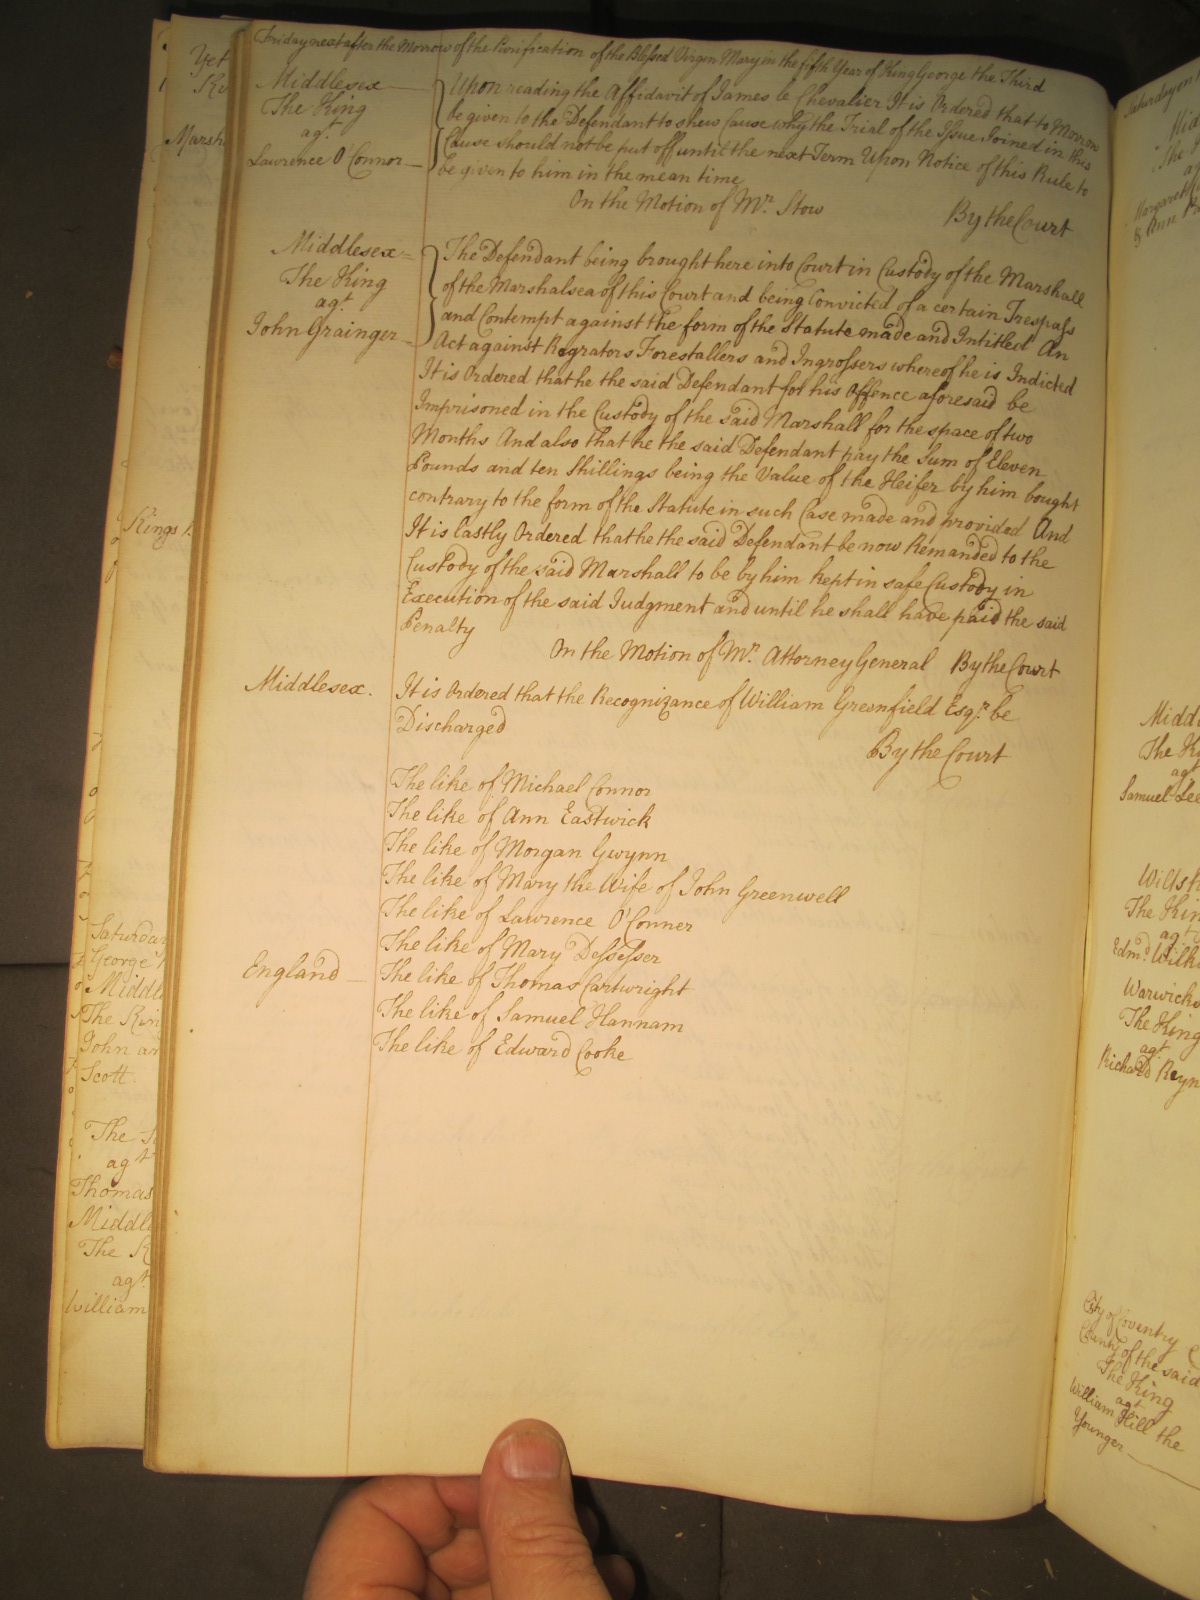 Friday next after the Morrow of the Purification of the Blessed Virgin Mary in the fifth Year of King George the Third
Middlesex
The King
agt.
Lawrence O'Connor
Upon reading the Affidavit of James le Chevalier It is Ordered that to Morrow
be given to the Defendant to shew Cause why the Trial of the Issue Joined in this
Cause should not be put off until the next Term Upon Notice of this Rule to
be given to him in the mean time
On the Motion of Mr. Stow
By the Court
Middlesex
The King
agt.
John Grainger
The Defendant being brought here into Court in Custody of the Marshall
of the Marshalsea of this Court and being Convicted of a certain Trespass
and Contempt against the form of the Statute made and Intitled An
Act against Regrators Forestallers and Ingrossers whereof he is Indicted
It is Ordered that he the said Defendant for his Offence aforesaid be
Imprisoned in the Custody of the said Marshall for the space of two
Months And also that he the said Defendant pay the Sum of Eleven
Pounds and ten Shillings being the Value of the Heifer by him bought
contrary to the form of the Statute in such Case made and provided And
It is lastly Ordered that he the said Defendant be now Remanded to the
Custody of the said Marshall to be by him kept in safe Custody in
Execution of the said Judgment and until he shall have paid the said
Penalty
On the Motion of Mr. Attorney General By the Court
Middlesex.
It is Ordered that the Recognizance of William Greenfield Esqr. be
Discharged
By the Court
The like of Michael Connor
The like of Ann Eastwick
The like of Morgan Gwynn
The like of Mary the Wife of John Greenwell
The like of Lawrence O'Conner
The like of Mary Dessesser
England
The like of Thomas Cartwright
The like of Samuel Hannam
The like of Edward Cooke
Yet
Marsh
Kings
Saturday
George
Middl
The Kin
John an
Scott.
The
agt
Thomas
Middl
The K
agt.
William
Saturday on
Mid
The
Margaret
& Ann
Middl
The K
agt
Samuel Lee
Wilts
The Kin
agt
Edmd. Wilk
Warwicks
The King
agt
Richard Reyn
City of Coventry
County of the said
The King
agt
William Hill the
Younger